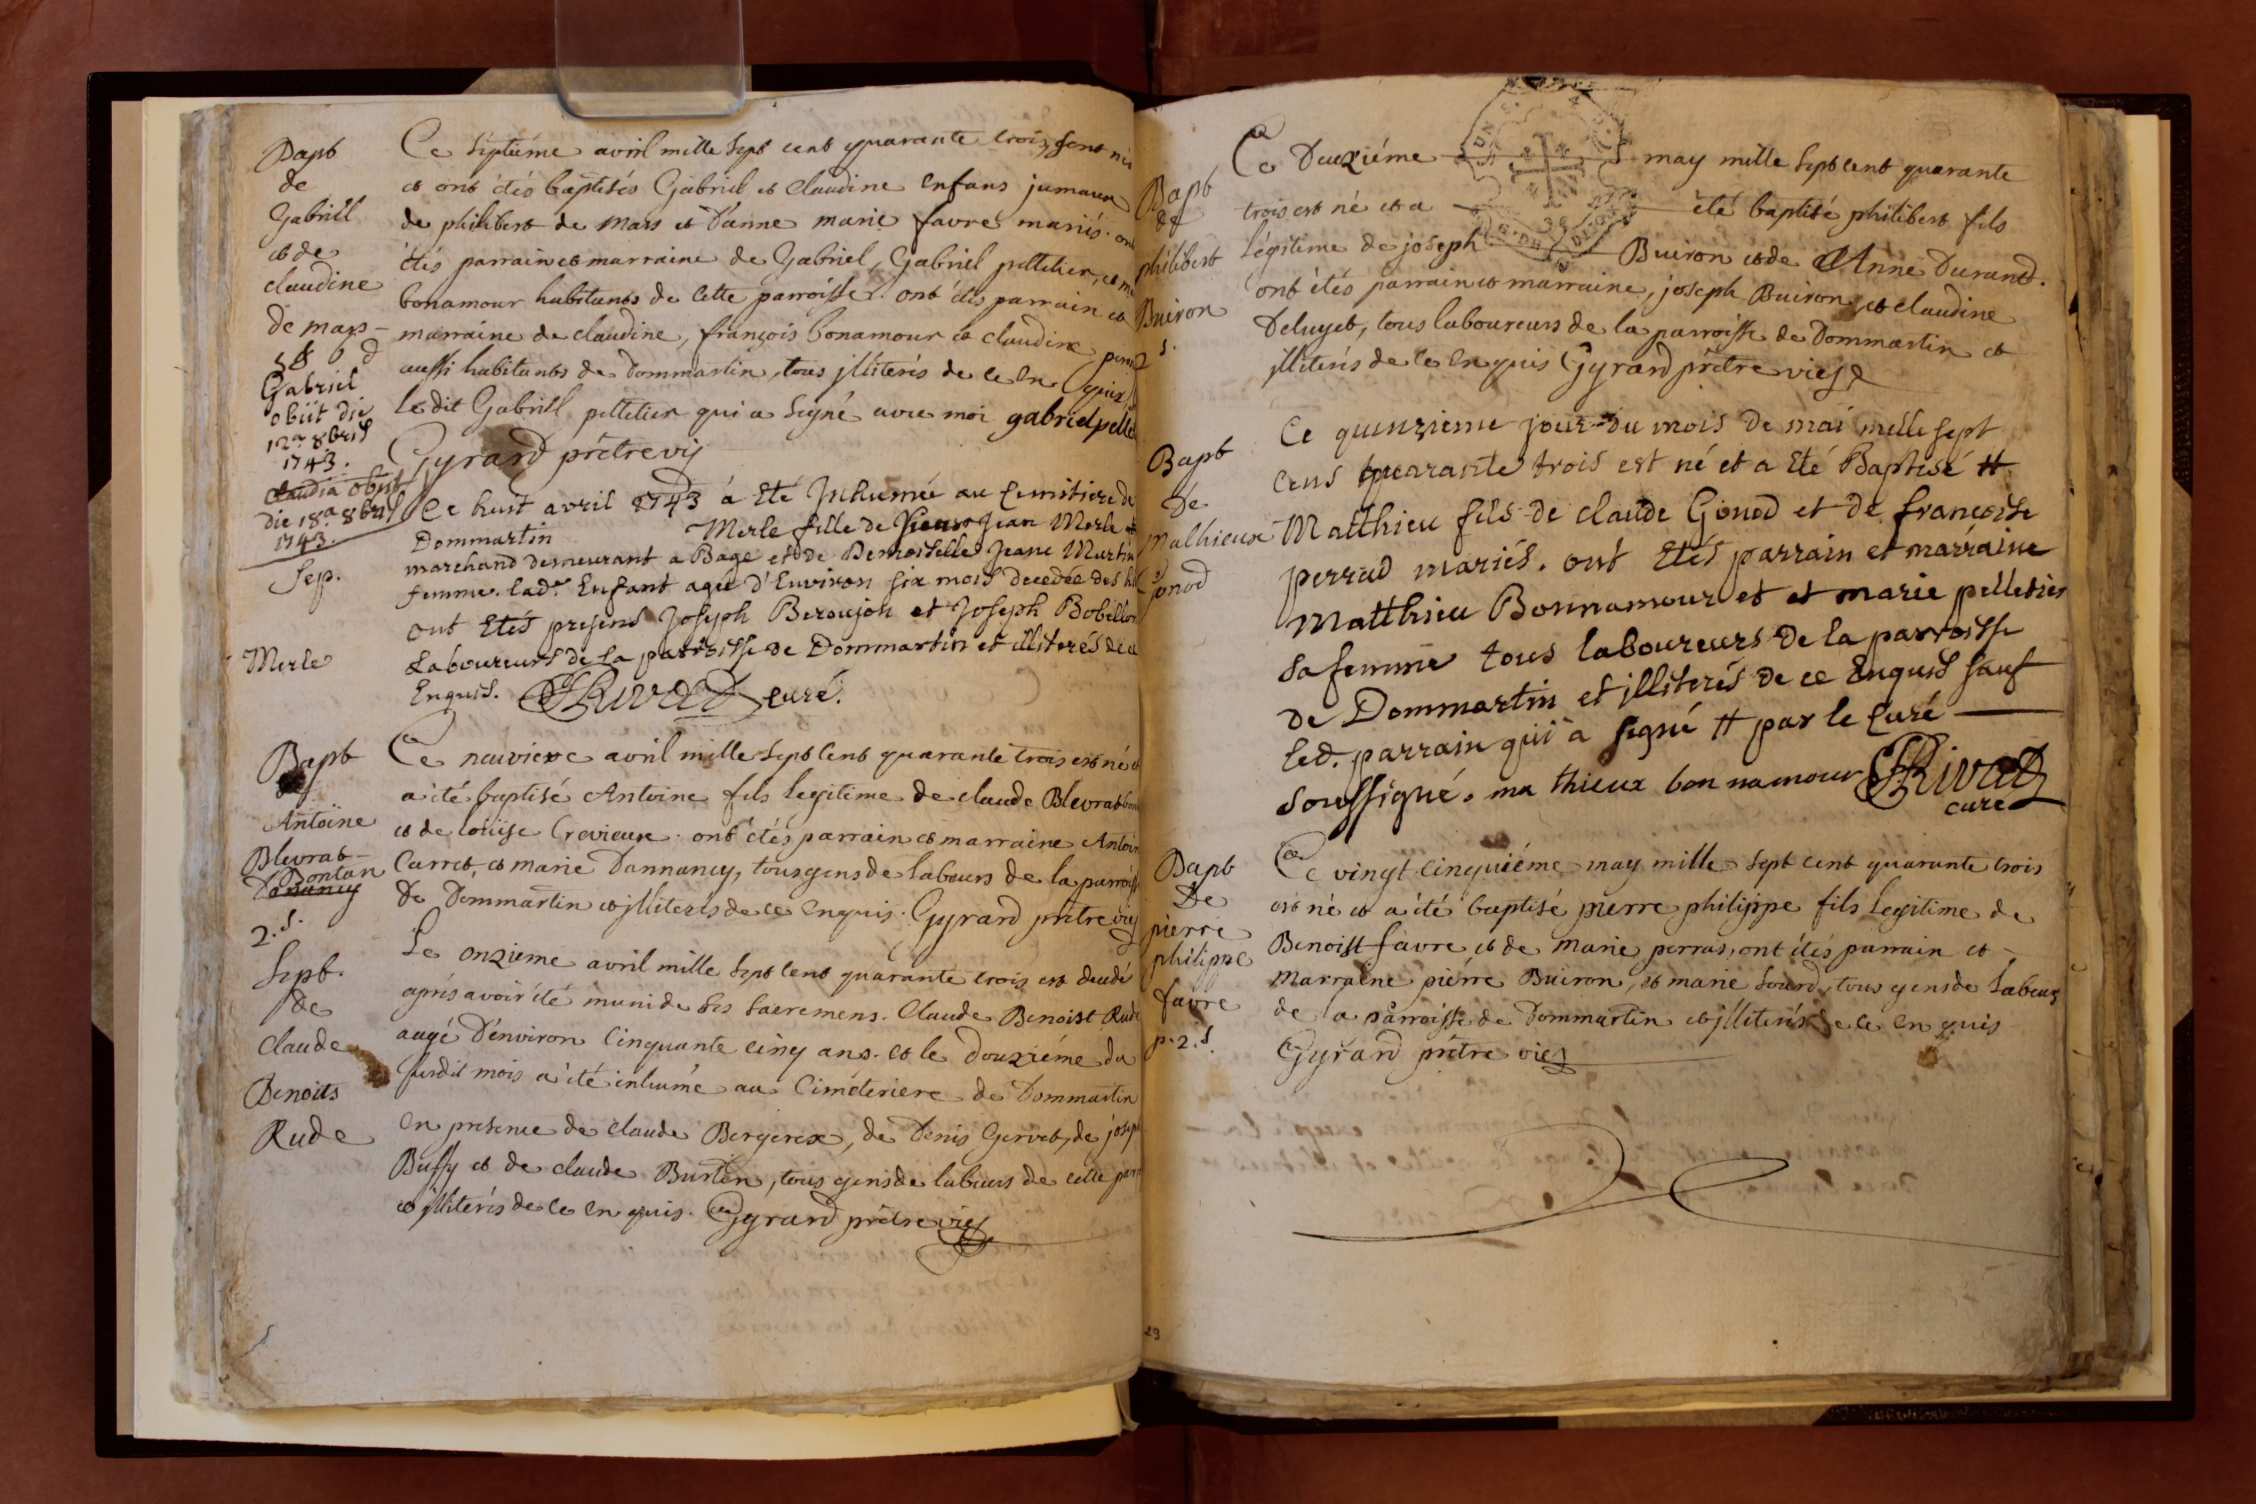 Bapt
de
Gabriel
et de
claudine
de mars
Gabriel
obiit die
12a 8bris
1743.
claudia obiit
die 18a 8bris
1743.
Ce septiéme avril mille sept cent quarante trois sont nés
et ont étés baptisés Gabriel et claudine enfans jumaux
de philibert de mars et d'anne marie favre mariés. ont
étés parrain et marraine de Gabriel, Gabriel pelletier, et
bonamour habitants de cette parroisse. ont étés parrain et
marraine de claudine, françois bonamour et claudine
aussi habitants de dommartin, tous jlliterés de ce en quis
ledit Gabriel pelletier qui a signé avec moi gabriel pelle
Gyrard prêtre vic
Sep.
Merle
Ce huit avril 1743 á Eté Inhumée au Cemitiere de
Dommartin Merle fille de Jean Merle
marchand demeurant a Bagé et de Demoiselle Jeane Martin
femme. lade. Enfant agée d'Environ six mois decedée des
ont Etés presens Joseph Beroujon et Joseph Bobillon
Laboureurs de la parroisse de Dommartin et illiterés de ce
Enquis. Rivat curé.
Bapt
de
Antoine
Blevrat
Bontan
Danancy
2. s.
Ce neuviéme avril mille sept cent quarante trois est né et
a été baptisé Antoine fils legitime de claude Blevrat
et de loüise Crevieux. ont étés parrain et marraine Antoine
Carret, et marie Dannancy, tous gens de labeurs de la parroisse
de Dommartin et jlliterés de ce enquis. Gyrard prêtre vic
Sept.
de
Claude
Benoits
Rude
Le onziéme avril mille sept cent quarante trois est decedé
aprés avoir été muni de ses sacremens. Claude Benoist Rude
augé d'environ cinquante cinq ans. et le douziéme du
susdit mois a été inhumé au Cimeteriere de Dommartin
en presence de claude Bergeret, de Denis Gervet, de joseph
Buffy et de claude Burten, tous gens de labeurs de cette
et jlliterés de ce en quis. Gyrard prêtre vic
Bapt
de
philibert
Buiron
s.
Ce Deuxiéme may mille sept cent quarante
trois est né et a été baptisé philibert fils
légitime de joseph Buiron et de Anne Durand.
ont étés parrain et marraine, joseph Buiron, et claudine
Deluyet, tous laboureurs de la parroisse de Dommartin et
jlliterés de ce en quis Gyrard prêtre vic
Bapt
de
Mathieux
Gonod
Ce quinzieme jour du mois de mai mille sept
cens quarante trois est né et a Eté Baptisé #
Matthieu fils de claude Gonod et de françoise
perrud mariés. ont Etés parrain et marraine
Matthieu Bonnamour et et marie pelletier
sa femme tous laboureurs de la parroisse
de Dommartin et jlliterés de ce Enquis sauf
led. parrain qui a signé # par le Curé
soussigné. ma thieux bon namour Rivat
curé
Bapt
De
pierre
philippe
favre
p. 2. s.
Ce vingt cinquiéme may mille sept cent quarante trois
est né et a été baptisé pierre philippe fils legitime de
Benoist favre et de marie perras, ont étés parrain et
marraine pierre Buiron, et marie sourd, tous gens de labeur
de la parroisse de Dommartin et jlliterés de ce en quis
Gyrard prêtre vic
23